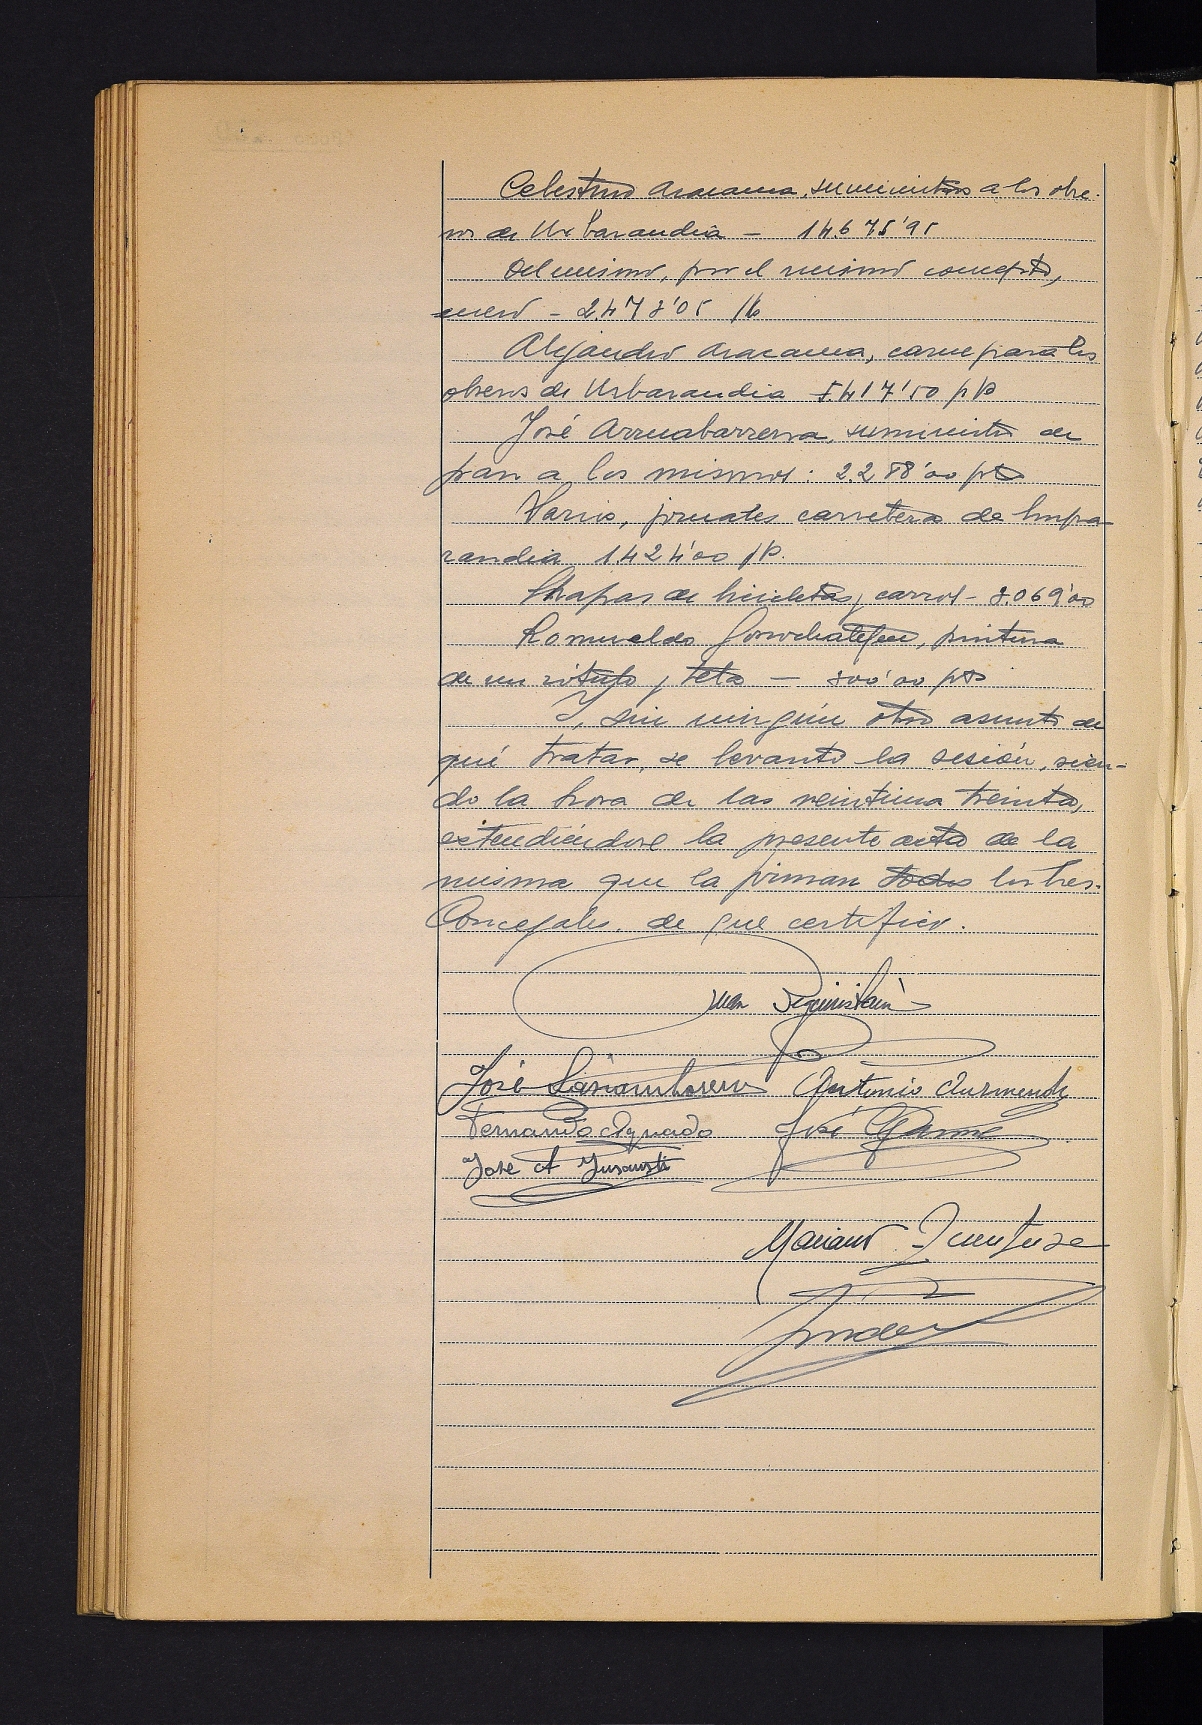 Celestino Aracama, suministros a los obre-
ros de Urbarandia – 14.675'95
Del mismo, por el mismo concepto,
enero – 2.478'05 pts
Alejandro Aracama, carne para los
obreros de Urbarandia 5.417'50 pts
José Arruabarrena, suministro de
pan a los mismos: 2.288'00 pts
Varios, jornales carretera de
1.424'00 pts.
Chapas de bicicletas y carros – 3.069'00
Romualdo, pintura
de un rótulo y – 300'00 pts
Y, sin ningún otro asunto de
qué tratar, se levantó la sesión, sien-
do la hora de las veintiuna treinta,
extendiéndose la presente acta de la
misma que la firman todos los Sres.
Concejales, de que certifico.
Juan Eguinistain
José
Antonio Aurmendi
Fernando Aguado
José
José A
Mariano